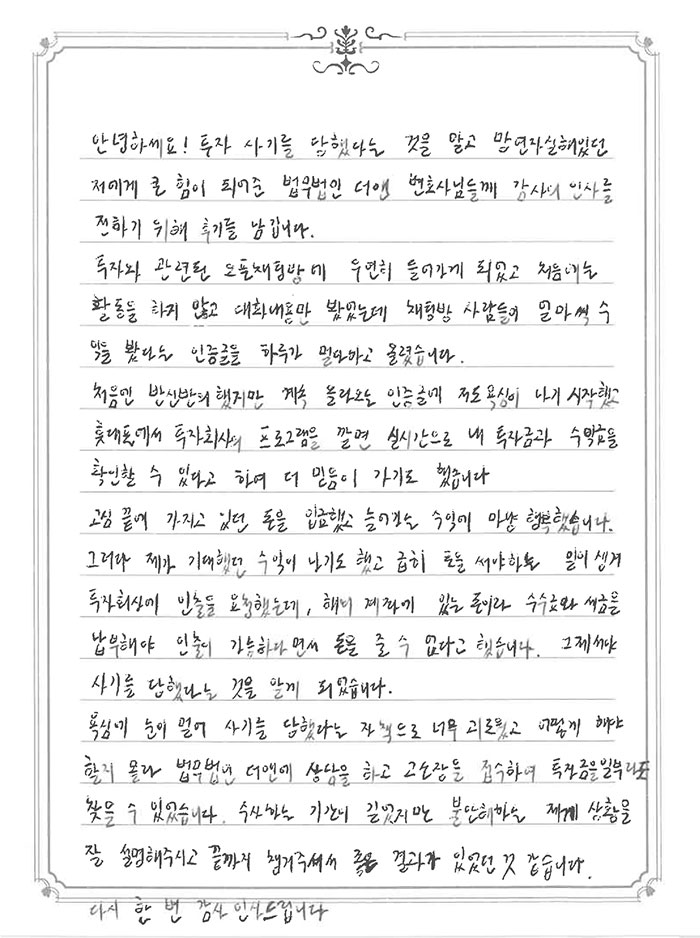 안녕하세요! 투자 사기를 당했다는 것을 알고 망연자실해있던
저에게 큰 힘이 되어준 법무법인 더앤 변호사님들께 감사의 인사를
전하기 위해 후기를 남깁니다.
투자와 관련된 오픈채팅방에 우연히 들어가게 되었고 처음에는
활동을 하지 않고 대화내용만 봤었는데 채팅방 사람들이 얼마씩 수
익을 봤다는 인증글을 하루가 멀다하고 올렸습니다.
처음엔 반신반의 했지만 계속 올라오는 인증글에 저도 욕심이 나기 시작했고
휴대폰에서 투자회사의 프로그램을 깔면 실시간으로 내 투자금과 수익금을
확인할 수 있다고 하여 더 믿음이 가기도 했습니다
고심 끝에 가지고 있던 돈을 입금했고 늘어나는 수익에 마냥 행복했습니다.
그러다 제가 기대했던 수익이 나기도 했고 급히 돈을 써야하는 일이 생겨
투자회사에 인출을 요청했는데, 해외 계좌에 있는 돈이라 수수료와 세금을
납부해야 인출이 가능하다면서 돈을 줄 수 없다고 했습니다. 그제서야
사기를 당했다는 것을 알게 되었습니다.
욕심에 눈이 멀어 사기를 당했다는 자책으로 너무 괴로웠고 어떻게 해야
할지 몰라 법무법인 더앤에 상담을 하고 고소장을 접수하여 투자금을 일부라도
찾을 수 있었습니다. 수사하는 기간이 길었지만 불안해하는 제게 상황을
잘 설명해주시고 끝까지 챙겨주셔서 좋은 결과가 있었던 것 같습니다.
다시 한 번 감사 인사드립니다